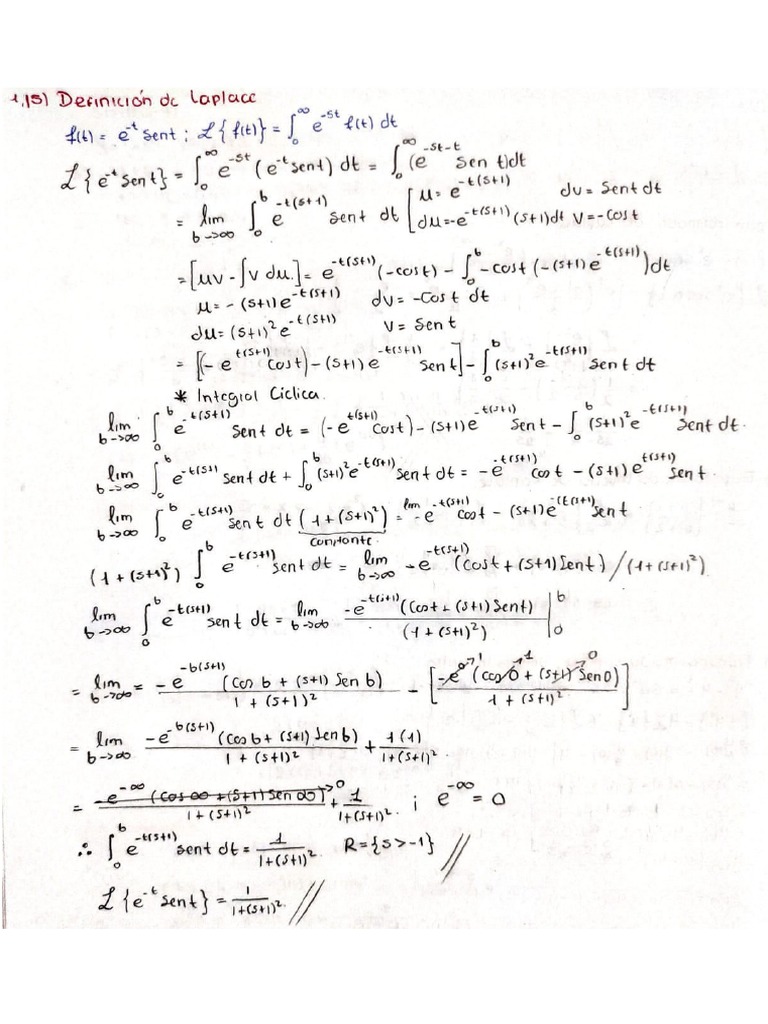 1.15) Definición de Laplace
f(t) = e^{-t} sent ; ℒ{f(t)} = ∫_0^∞ e^{-st} f(t) dt
ℒ{e^{-t} sent} = ∫_0^∞ e^{-st} (e^{-t} sent) dt = ∫_0^∞ (e^{-st-t} sen t) dt
= lim_{b→∞} ∫_0^b e^{-t(s+1)} sent dt [ μ = e^{-t(s+1)} dv = sent dt
dμ = -e^{-t(s+1)} (s+1)dt V = -cost
= [μv - ∫v dμ] = e^{-t(s+1)} (-cost) - ∫_0^b -cost (-(s+1) e^{-t(s+1)}) dt
μ = -(s+1) e^{-t(s+1)} dv = -cos t dt
dμ = (s+1)^2 e^{-t(s+1)} v = sen t
= [(-e^{t(s+1)} cost) - (s+1) e^{-t(s+1)} sen t] - ∫_0^b (s+1)^2 e^{-t(s+1)} sen t dt
* Integral Ciclica.
lim_{b→∞} ∫_0^b e^{-t(s+1)} sent dt = (-e^{t(s+1)} cost) - (s+1) e^{-t(s+1)} sen t - ∫_0^b (s+1)^2 e^{-t(s+1)} sent dt.
lim_{b→∞} ∫_0^b e^{-t(s+1} sent dt + ∫_0^b (s+1)^2 e^{-t(s+1)} sent dt = -e^{-t(s+1)} cot - (s+1) e^{t(s+1)} sen t.
lim_{b→∞} ∫_0^b e^{-t(s+1)} sen t dt (1 + (s+1)^2) = lim -e^{-t(s+1)} cost - (s+1) e^{-(t(s+1)} sen t
constante.
(1 + (s+1)^2) ∫_0^b e^{-t(s+1)} sent dt = lim_{b→∞} -e^{-t(s+1)} (cost + (s+1) sent) / (1 + (s+1)^2)
lim_{b→∞} ∫_0^b e^{-t(s+1)} sen t dt = lim_{b→∞} -e^{-t(s+1)} (cost + (s+1) sent) / (1 + (s+1)^2) |_0^b
= lim_{b→∞} = -e^{-b(s+1)} (cos b + (s+1) sen b) / 1 + (s+1)^2 - [-e^0 (cos 0 + (s+1) sen 0) / 1 + (s+1)^2]
= lim_{b→∞} -e^{-b(s+1)} (cos b + (s+1) sen b) / 1 + (s+1)^2 + 1(1) / 1+(s+1)^2.
= -e^{-∞} (cos ∞ + (s+1) sen ∞) / 1+(s+1)^2 → 0 + 1 / 1+(s+1)^2. ; e^{-∞} = 0
∴ ∫_0^b e^{-t(s+1)} sent dt = 1 / 1+(s+1)^2. R = {s > -1} //
ℒ{e^{-t} sent} = 1 / 1+(s+1)^2. //